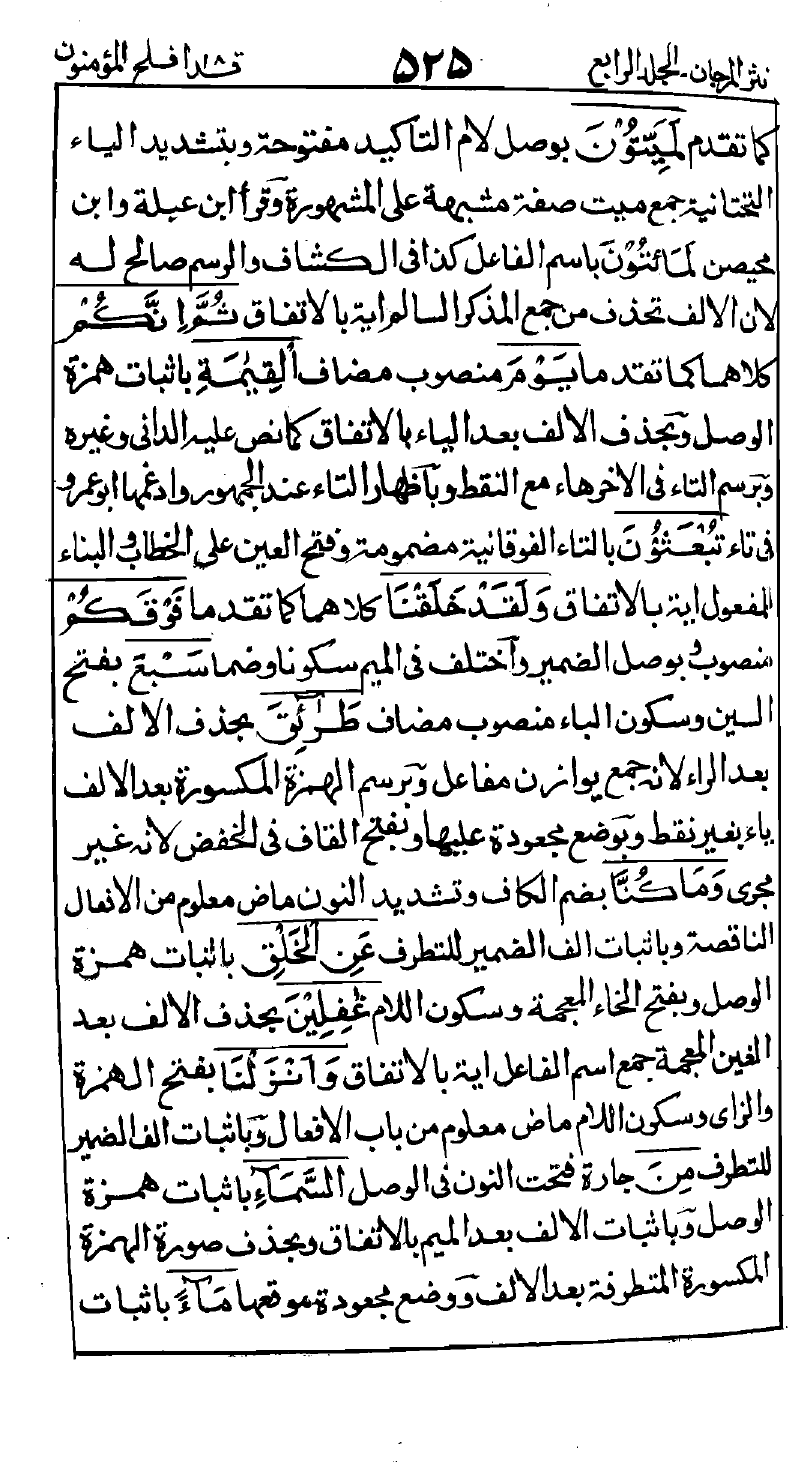 نثر المرجان - المجلد الرابع ٥٢٥ قد افلح ١٨ المؤمنون
كما تقدم لَمَيِّتُوْنَ بوصل لام التاكيد مفتوحة وبتشديد الياء
التحتانية جمع ميت صفة مشبهة على المشهورة وقرأ ابن عبلة وابن
محيصن لمائتُوْنَ باسم الفاعل كذا فى الكشاف والرسم صالح له
لان الالف تحذف من جمع المذكر السالم اية بالاتفاق ثُمَّ اِنَّكُمْ
كلاهما كما تقدما يَوْمَ منصوب مضاف الْقِيٰمَةِ باثبات همزة
الوصل وبحذف الالف بعد الياء بالاتفاق كما نص عليه الدانى وغيره
وبرسم التاء فى الاخر هاء مع النقط وباظهار التاء عند الجمهور وادغمها ابو عمرو
فى تاء تُبْعَثُوْنَ بالتاء الفوقانية مضمومة وفتح العين على الخطاب والبناء
للمفعول اية بالاتفاق وَلَقَدْ خَلَقْنَا كلاهما كما تقدما فَوْقَكُمْ
منصوب وبوصل الضمير واختلف فى الميم سكونا وضما سَبْعَ بفتح
السين وسكون الباء منصوب مضاف طَرَآئِقَ بحذف الالف
بعد الراء لانه جمع يوازن مفاعل وبرسم الهمزة المكسورة بعد الالف
ياء بغير نقط وبوضع مجعودة عليها وبفتح القاف فى الخفض لانه غير
مجرى وَمَا كُنَّا بضم الكاف وتشديد النون ماض معلوم من الافعال
الناقصة وباثبات الف الضمير للتطرف عَنِ الْخَلْقِ باثبات همزة
الوصل وبفتح الخاء المعجمة وسكون اللام غٰفِلِيْنَ بحذف الالف بعد
الغين المعجمة جمع اسم الفاعل اية بالاتفاق وَاَنْزَلْنَا بفتح الهمزة
والزاى وسكون اللام ماض معلوم من باب الافعال وباثبات الف الضمير
للتطرف مِنَ جارة فتحت النون فى الوصل السَّمَآءِ باثبات همزة
الوصل وباثبات الالف بعد الميم بالاتفاق وبحذف صورة الهمزة
المكسورة المتطرفة بعد الالف ووضع مجعودة موقعها مَآءً باثبات